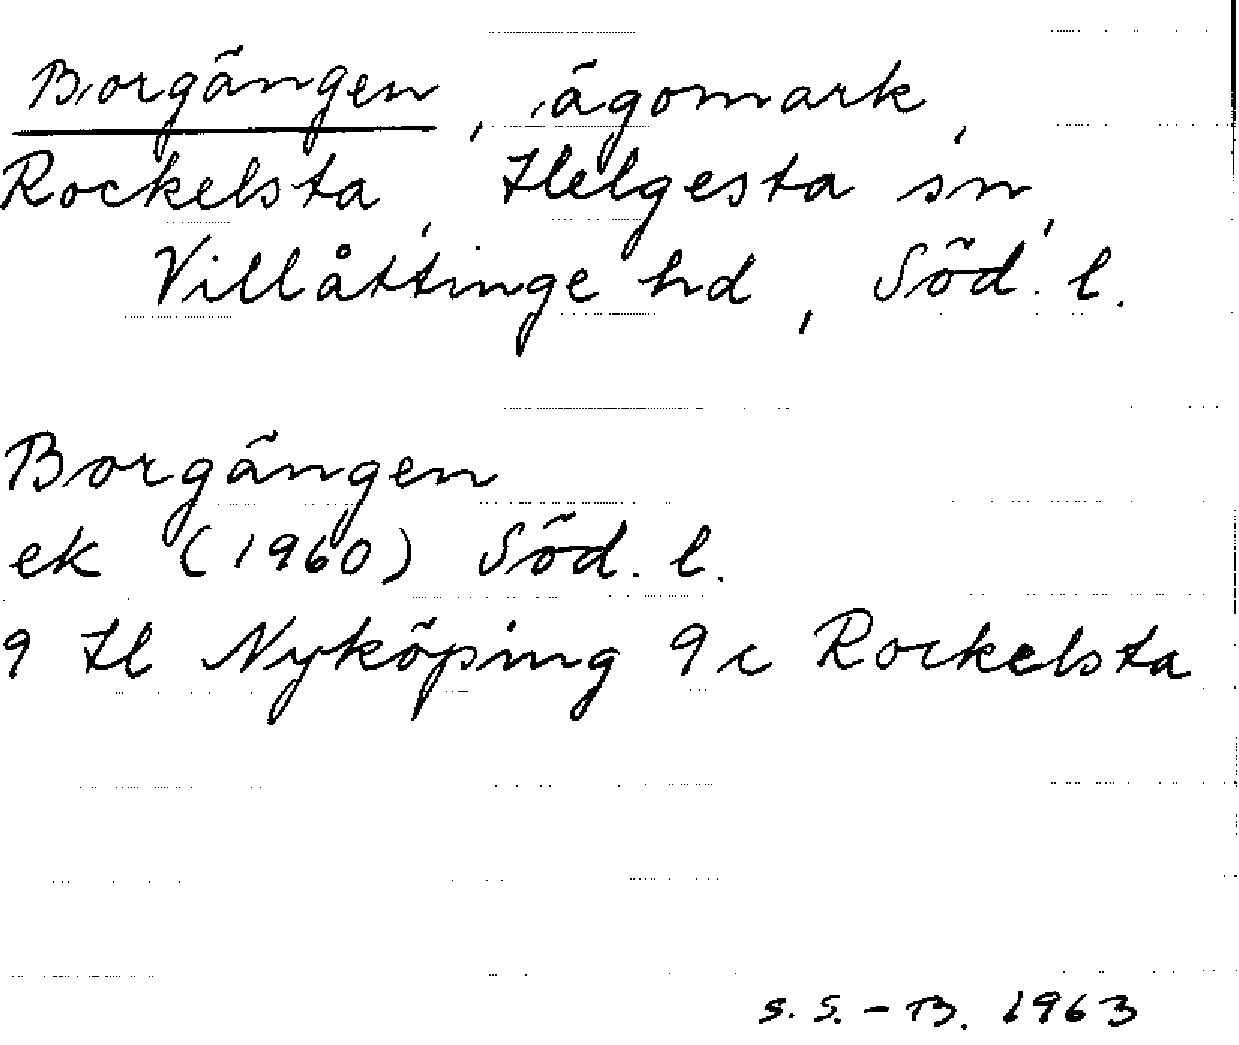 Borgängen, ägomark,
Rockelsta, Helgesta sn,
Villåttinge hd, Söd. l.
Borgängen
ek (1960) Söd. l.
9 H Nyköping 9 c Rockelsta
S. S. - B. 1963